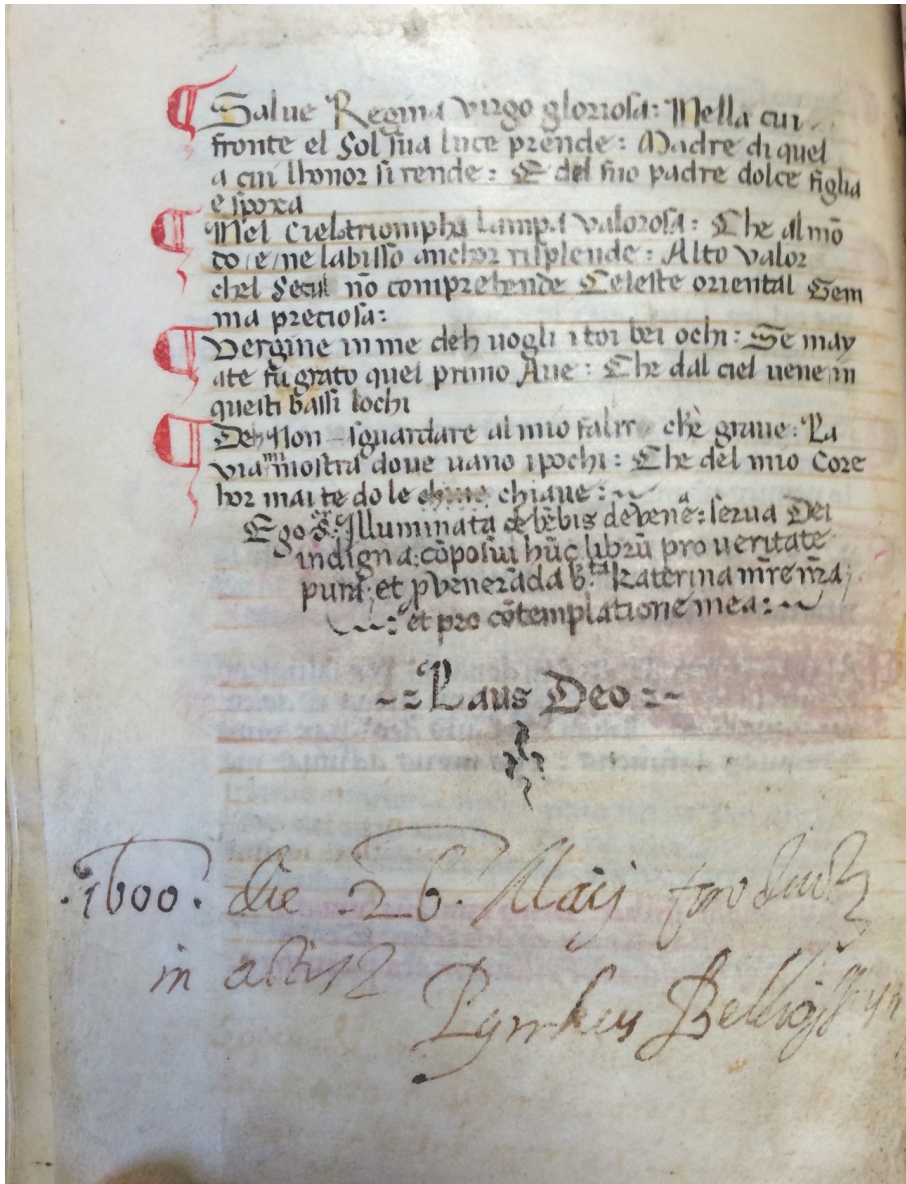 ¶ Salue Regina virgo gloriosa: Nella cui
fronte el Sol sua luce prende: Madre di quel
a cui lhonor si rende: E del suo padre dolce figlia
e sposa
¶ Nel Ciel triompha lampa valorosa: Che al mō
do e ne labisso anchor risplende: Alto valor
chel secul nō comprehende Celeste oriental Gem
ma preciosa:
¶ Vergine in me deh uogli i toi bei ochi: Se may
ate fu grato quel primo Aue: Che dal ciel uene in
questi bassi lochi
¶ Deh Non sguardare al mio falir chè graue: La
via mostra doue uano i pochi: Che del mio Core
hor mai te do le chiaue:
Ego Sr. Illuminata de bēbis de venē: serua Dei
indigna: cōposiui hūc librū pro ueritate
pura: et p venerāda bta. Katerina mr̄e nr̄a:
et pro cōtemplatione mea:
~: Laus Deo :~
.1600. die .26. Maij
in actis